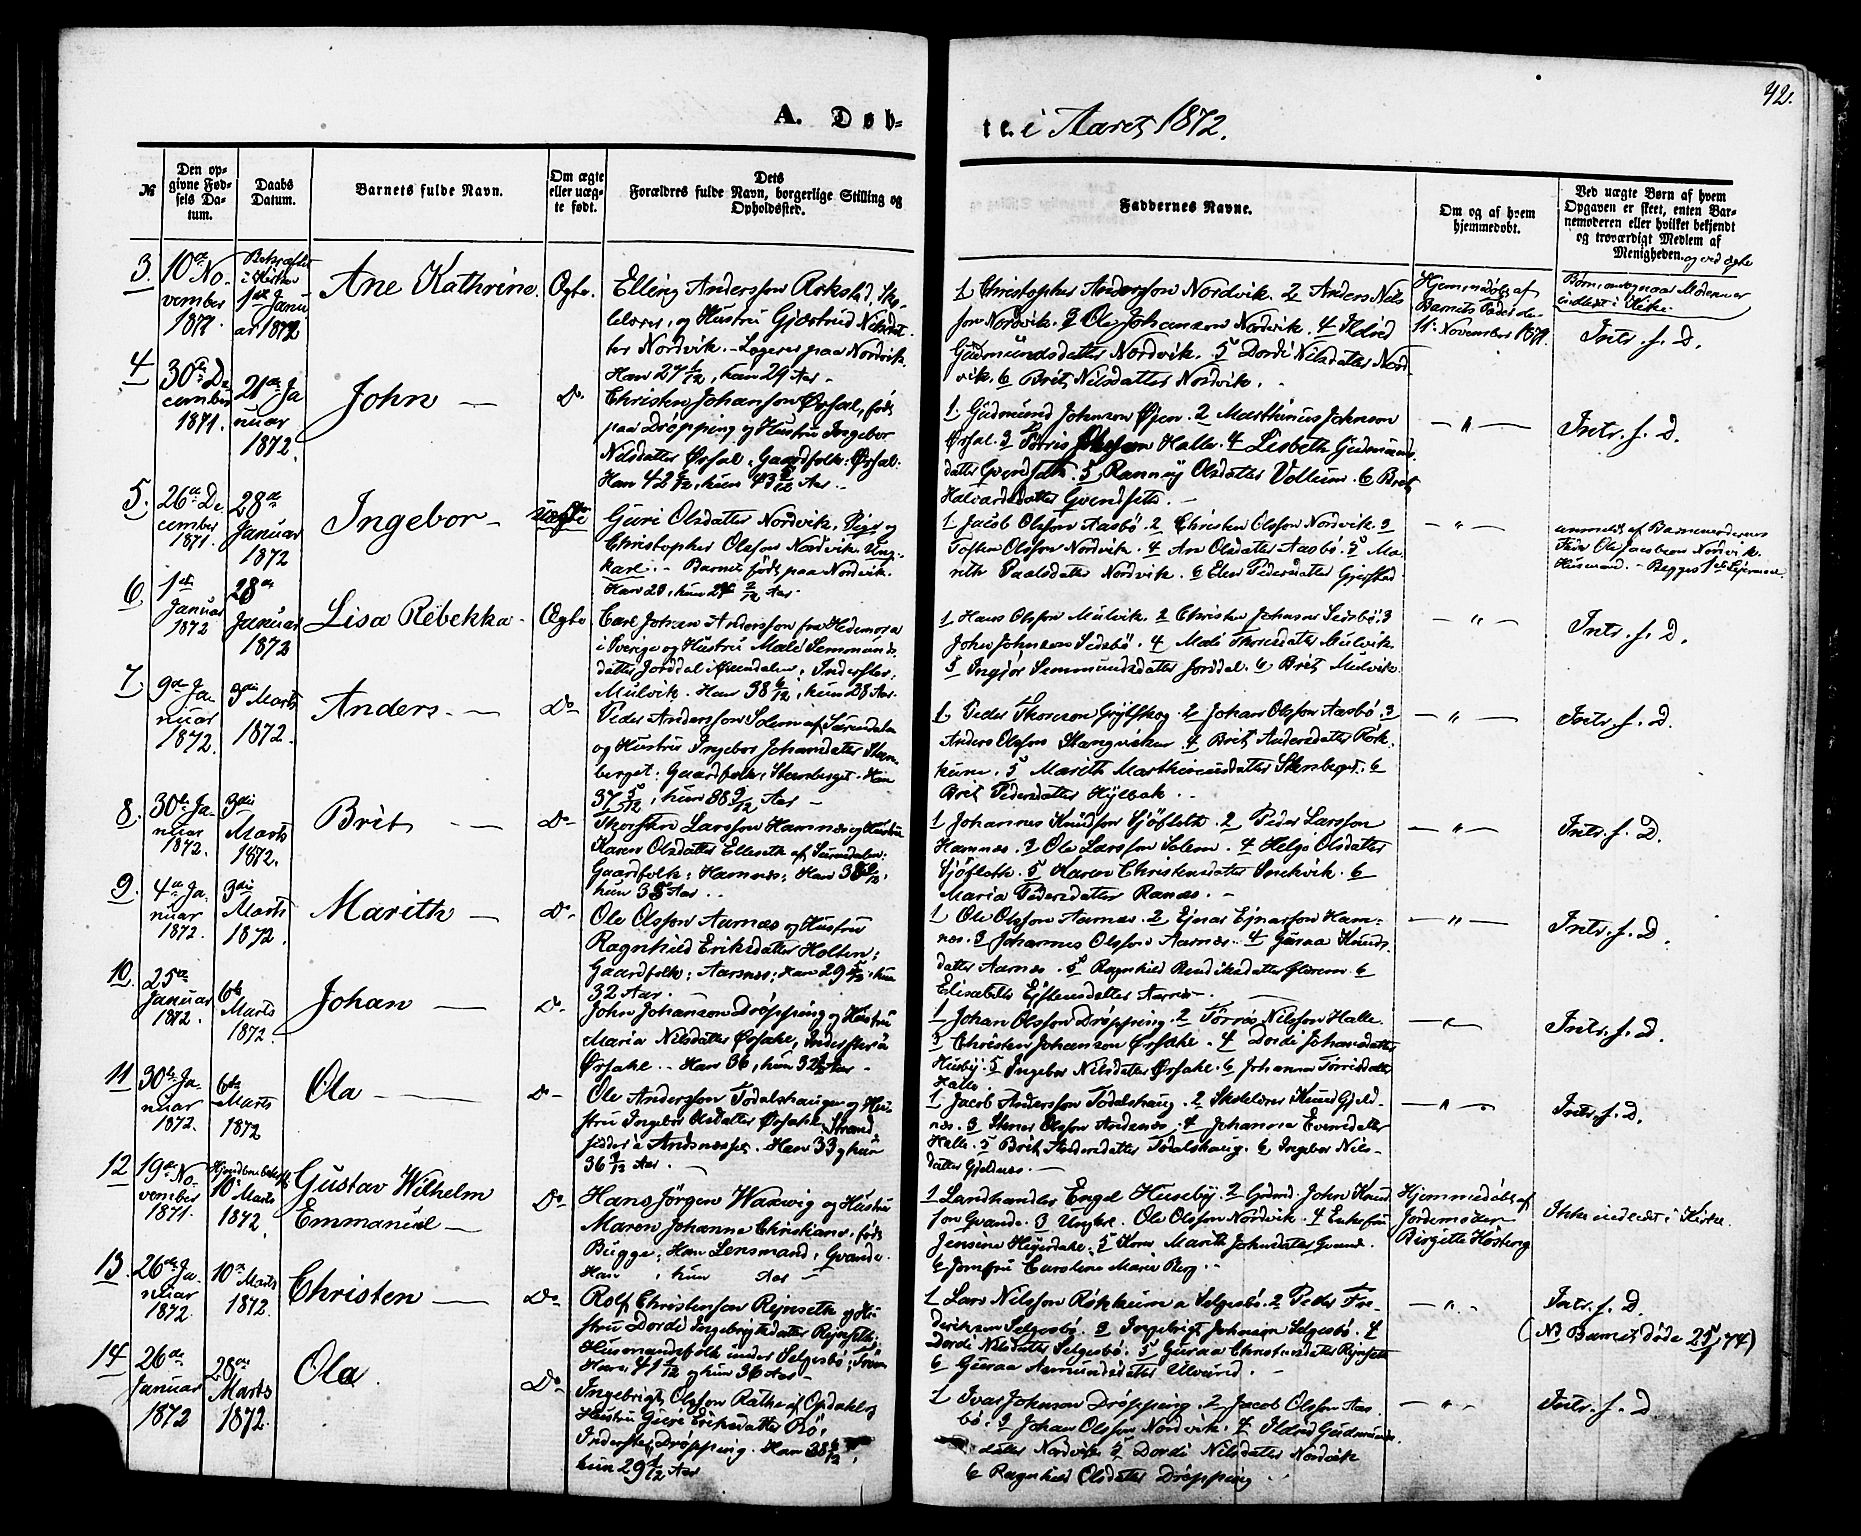 42.
A. Døb-
te i Aaret 1872.
№
Den op-
givne Fød-
sels Da-
tum.
Daabs
Datum.
Barnets fulde Navn.
Om ægte
eller uæg-
te født.
Dets
Forældres fulde Navn, borgerlige Stilling og
Opholdssted.
Faddernes Navne.
Om og af hvem
hjemmedøbt.
Ved uægte Børn af hvem
Opgaven er skeet, enten Bar-
nemoderen eller hvilket bekjendt
og troværdigt Medlem af
Menigheden. og ved ægte
Børn, naar Moderen er
indledt i Kirke.
3.
10de No-
vember
1871.
i Kirken
1ste Janu
ar 1872
Ane Kathrine
Ægte.
Elling Anderssøn
og Hustru Gjertrud Nilsdat-
ter Nordvik. Logerer paa Nordvik.
Han 27 1/12, hun 29 Aar
1 Christopher Anderssøn Nordvik. 2 Anders Nils
søn Nordvik. 3 Ole Johansson Nordvik. 4 Ildrid
Gudmundsdatter Nordvik. 5 Dordi Nilsdatter Nord
vik. 6 Brit Nilsdatter Nordvik.
Hjemmedøbt af
Barnets Fader den
11te November 1871.
Intr. f. D.
4
30te De
cember
1871.
21de Ja
nuar
1872.
John
Do
Christen Johansøn Ørsal, født
paa Drøpping og Hustru Ingebor
Nilsdatter Ørsal: Gaardfolk: Ørsal.
Han 42, hun 43 Aar.
1 Gudmund Johnsøn Øien. 2 Marthinus Johnsøn
Ørsal. 3 Tørris Halle. 4 Lisbeth Gudmunds
datter Qvendseth. 5 Rannøy Olsdatter Vollum. 6 Brit
Halvardsdatter Qvendseth.
"
Intr. f. D.
5.
26de De
cember
1871.
28de
Januar
1872
Ingebor
Uægte
Guri Olsdatter Nordvik, Pige og
Christopher Olsson Nordvik Ung-
karl. Barnet født paa Nordvik.
1 Jacob Olsson Aasbø. 2 Christen Olsson Nordvik. 3
Tosten Olsson Nordvik. 4 Ane Olsdatter Aasbø. 5 Ma-
rith Paalsdatter Nordvik. 6 Elen Pedersdatter
"
anmeldt af Barnemoderens
Fader Ole Jacobson Nordvik
Husmand. Begges 1ste Leiermaal
6
1ste
Januar
1872
28de
Januar
1872
Lisa Rebekka
Ægte
Carl Johan Andersson fra Hedemora
i Sverige og Hustru Malé Semmunds
datter Jorddal: Inderster:
Mulvik. Han 38 6/12, hun 28 Aar.
1 Hans Olsson Mulvik. 2 Christen Johnsøn Settebø. 3
John Johnsøn Settebø. 4 Malé Thoresdatter Mulvik.
5 Ingjør Semmundsdatter Jorddal. 6 Brit Mulvik.
"
Intr. f. D.
7.
9de Ja-
nuar
1872.
3die Marts
1872.
Anders
Do
Peder Anderssøn Solem af Surendalen
og Hustru Ingebor Johansdatter Sten
berget: Gaardfolk: Stenberget. Han
37 5/12, hun 38 9/12 Aar
1 Peder Thoresøn Grytskog. 2 Johan Olsson Aasbø. 3
Anders Olsson Stangvik 4 Brit Andersdatter Røk-
kum. 5 Marith Marthinusdatter Stenberget. 6
Brit Pedersdatter Hylbak.
"
Intr. f. D.
8.
30te Ja-
nuar
1872.
3die
Marts
1872.
Brit
Do
Thorsten Larssøn Hamnes og Hustru
Karen Olsdatter Elleseth af Surendalen:
Gaardfolk: Hamnes: Han
hun 38 Aar.
1 Johannes Knudsøn Sjøflote. 2 Peder Larssøn
Hamnæs. 3 Ole Larssøn Solem. 4 Helgi Olsdatter
Sjøflote. 5 Karen Christensdatter Snekvik. 6
Maria Pedersdatter Ranæs.
"
Intr. f. D.
9.
4de Ja-
nuar
1872.
3die
Marts
1872.
Marith
Do
Ole Olsson Aarnæs og Hustru
Ragnhild Eriksdatter Holten:
Gaardfolk: Aarnæs: Han 29 5/12, hun
32 Aar.
1 Ole Olsson Aarnæs. 2 Ejnar Ejnarsøn Ham-
næs. 3 Johannes Olsson Aarnæs. 4 Guraa Knuds
datter Aarnæs. 5 Ragnhild Bendiksdatter Glærem. 6
Elisabeth Eistensdatter Aarnæs.
"
Intr. f. D.
10.
25de
Januar
1872.
6te
Marts
1872.
Johan
Do
John Johansøn Drøpping og Hustru
Maria Nilsdatter Ørsahl, Inderster:
Ørsahl. Han 36, hun 32 Aar
1 Johan Olsson Drøpping. 2 Tørris Nilsson Halle.
3 Christen Johansøn Ørsahl. 4 Dordi Johansdatter
Husby. 5 Ingebor Nilsdatter Ørsahl. 6 Johanna Tørrisdatter
Halle.
"
Intr. f. D.
11
30te Ja-
nuar
1872.
6te
Marts
1872
Ola
Do
Ole Anderssøn Todalshaugen og Hu-
stru Ingebor Olsdatter Ørsahl Strand
sidder: Andsnesset. Han 33 og hun
36 Aar.
1 Jacob Anderssøn Todalshaug. 2 Skolelærer Knud Gjeld-
næs. 3 Stener Olsson Andsnes. 4 Johanna Evensdatter
Halle. 5 Brit Andersdatter Todalshaug. 6 Ingebor Nils-
datter Gjeldnæs.
"
Intr. f. D.
12
19de No-
vember
1871.
10de Marts
1872.
Gustav Wilhelm
Emmanuel
Do
Hans Jørgen Waxwig og Hustru
Maren Johanne Christiane, født
Bugge: Han Lensmand: Qvande.
Han , hun Aar
1 Landhandler Engel Huseby. 2 Grdmd. John Knud
søn Qvande. 3 Ungkrl. Ole Olsson Nordvik. 4 Enkefru
Jensine Heyerdahl. 5 Kone Marith Johnsdatter Qvande.
6 Jomfru Caroline Marie Berg.
Hjemmedøbt af
Jordemoder
Birgitte Høsberg
Ikke indledt i Kirke.
13.
26de Ja-
nuar
1872.
10de Marts
1872.
Christen
Do
Rolf Christensøn Rejnseth og Hu-
stru Dordi Ingebrigtsdatter Rejnseth:
Husmandsfolk under Selgesbø:
Han 41 1/12 og hun 36 Aar
1 Lars Nilssøn Røkkum a Selgesbø. 2 Peder Fre-
deriksen Selgesbø. 3 Ingebrigt Johnsøn Selgesbø. 4
Dordi Nilsdatter Selgesbø. 5 Guraa Christensdatter Rejnseth
6 Guraa Aamundsdatter Ulvund.
"
Intr. f. D.
(NB Barnet døde 25/7 74)
14
26de
Januar
1872
28de
Marts
1872.
Ola.
Do
Ingebrigt Olsson Rathe af Opdal og
Hustru Guri Eriksdatter Bø:
Inderster: Drøpping. Han 38 6/12,
hun 29 1/12 Aar
1 Ivar Johnsøn Drøpping. 2 Jacob Olsson Aas
bø. 3 Johan Olsson Nordvik. 4 Ildrid Gudmunds
datter Nordvik 5 Dordi Nilsdatter Nordvik
6 Ragnhild Olsdatter Drøpping
"
Intr. f. D